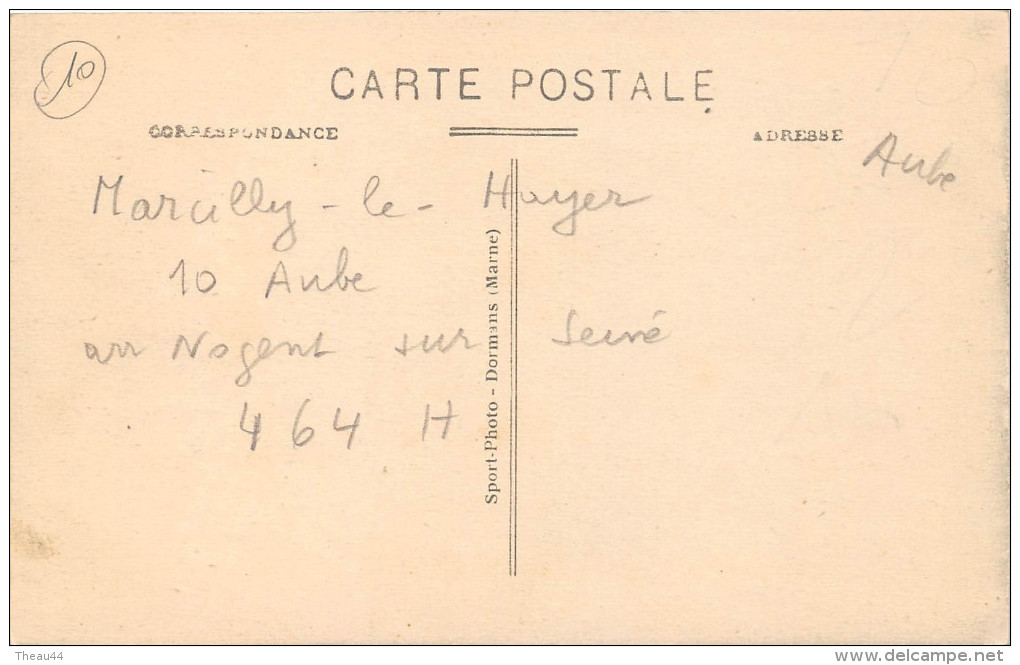 10
CARTE POSTALE
CORRESPONDANCE
ADRESSE
Aube
Marcilly - le - Hayer
10 Aube
arr Nogent sur Seine
464 H
Sport-Photo - Dormans (Marne)
Theau44
www.delcampe.net